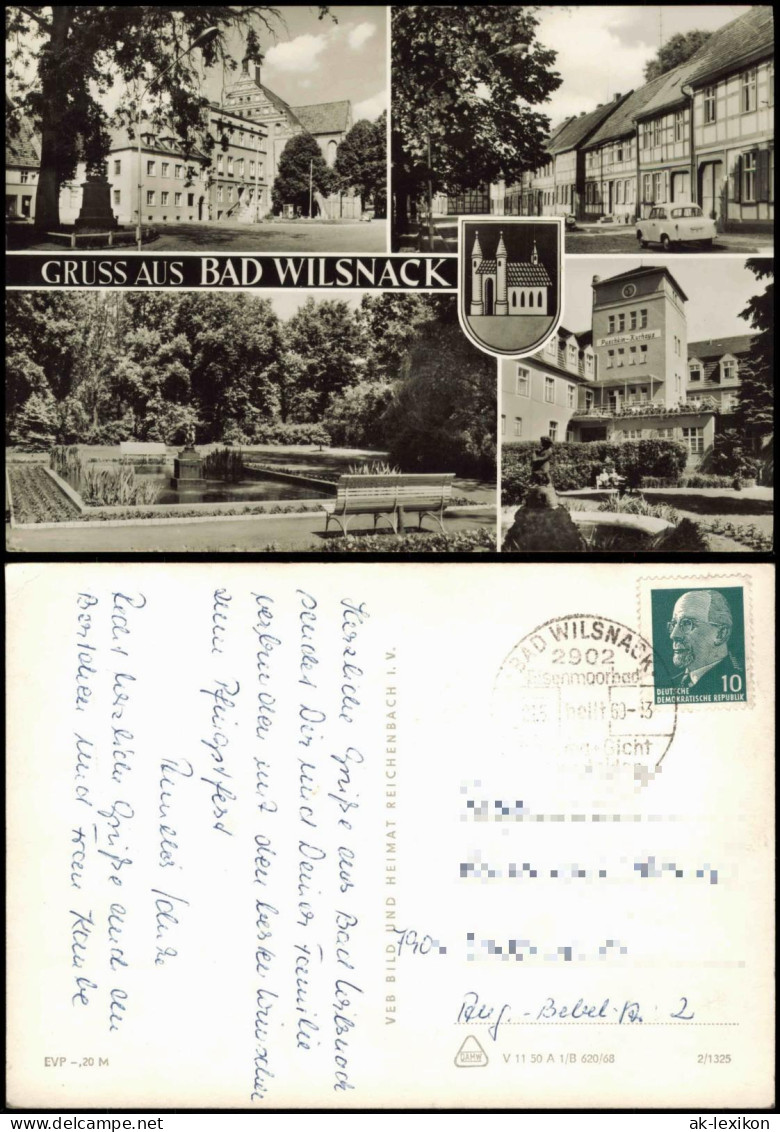 GRUSS AUS BAD WILSNACK
Puschkin-Kurhaus
Herzliche Grüße aus Bad Wilsnack
sendet Dir und Deiner Familie
verbunden mit den besten Wünschen
zum Pfingstfest
Recht herzliche Grüße auch an
und Frau
VEB BILD UND HEIMAT REICHENBACH I. V.
BAD WILSNACK
2902
Eisenmoorbad
hilft
Gicht
10
DEUTSCHE
DEMOKRATISCHE REPUBLIK
790
Aug.-Bebel-Str. 2
EVP -,20 M
DAMW
V 11 50 A 1/B 620/68
2/1325
www.delcampe.net
ak-lexikon